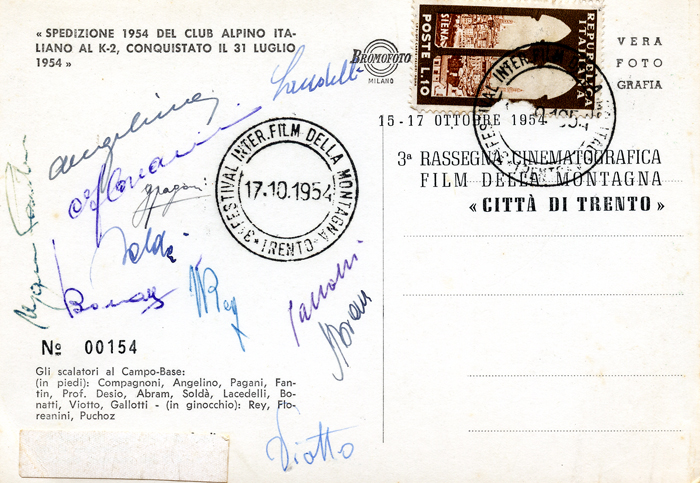 « SPEDIZIONE 1954 DEL CLUB ALPINO ITA-
LIANO AL K-2, CONQUISTATO IL 31 LUGLIO
1954 »
BROMOFOTO
MILANO
REPUBBLICA
ITALIANA
SIENA
POSTE L.10
VERA
FOTO
GRAFIA
15-17 OTTOBRE 1954
3ª RASSEGNA CINEMATOGRAFICA
FILM DELLA MONTAGNA
« CITTÀ DI TRENTO »
Lacedelli
Angelino
Floreanini
Pagani
3° FESTIVAL INTER. FILM DELLA MONTAGNA
17·10.1954
TRENTO
Soldà
Bonatti
Rey
Gallotti
Abram
Nº 00154
Gli scalatori al Campo-Base:
(in piedi): Compagnoni, Angelino, Pagani, Fan-
tin, Prof. Desio, Abram, Soldà, Lacedelli, Bo-
natti, Viotto, Gallotti - (in ginocchio): Rey, Flo-
reanini, Puchoz
Viotto